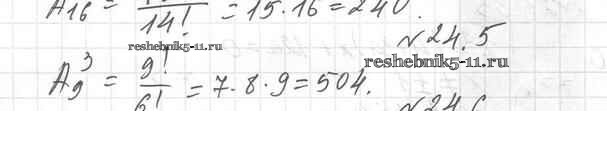 A₁₆ = 14! = 15·16 = 240.
reshebnik5-11.ru
№24.5
reshebnik5-11.ru
A₉³ = 9!/6! = 7·8·9 = 504.
№24.6